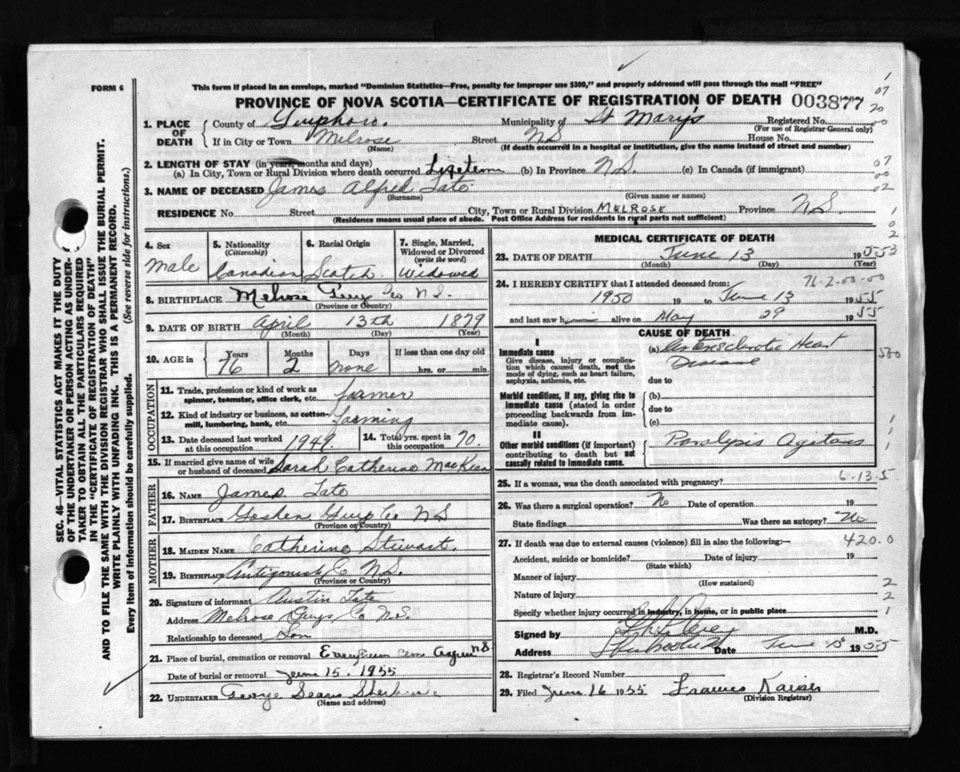 FORM 6
This form if placed in an envelope, marked "Dominion Statistics—Free, penalty for improper use $300," and properly addressed will pass through the mail "FREE"
PROVINCE OF NOVA SCOTIA—CERTIFICATE OF REGISTRATION OF DEATH 003877
1. PLACE OF DEATH
County of Municipality of St Mary's Registered No.
(For use of Registrar General only)
If in City or Town Melrose Street NS House No.
(Name) (If death occurred in a hospital or institution, give the name instead of street and number)
2. LENGTH OF STAY (in years, months and days)
(a) In City, Town or Rural Division where death occurred Lifetime (b) In Province N.S. (c) In Canada (if immigrant)
3. NAME OF DECEASED James Alfred Tate
(Surname) (Given name or names)
RESIDENCE No. Street City, Town or Rural Division MELROSE Province N.S.
(Residence means usual place of abode. Post Office Address for residents in rural parts not sufficient)
4. Sex
Male
5. Nationality
(Citizenship)
Canadian
6. Racial Origin
Scotch
7. Single, Married, Widowed or Divorced
(write the word)
Widowed
8. BIRTHPLACE Melrose Guy Co N.S.
(Province or Country)
9. DATE OF BIRTH April 13th 1879
(Month) (Day) (Year)
10. AGE in
Years Months Days If less than one day old
76 2 none hrs. or min.
OCCUPATION
11. Trade, profession or kind of work as spinner, teamster, office clerk, etc. Farmer
12. Kind of industry or business, as cotton-mill, lumbering, bank, etc. Farming
13. Date deceased last worked at this occupation 1949 14. Total yrs. spent in 70.
15. If married give name of wife or husband of deceased Sarah Catherine MacKeen
FATHER
16. NAME James Tate
17. BIRTHPLACE Goshen Guy Co NS
(Province or Country)
MOTHER
18. MAIDEN NAME Catherine Stewart.
19. BIRTHPLACE Antigonish Co N.S.
(Province or Country)
20. Signature of informant Austin Tate
Address Melrose Guys Co N.S.
Relationship to deceased Son
21. Place of burial, cremation or removal Evergreen cem NS
Date of burial or removal June 15. 1955
22. UNDERTAKER George Sears
(Name and address)
MEDICAL CERTIFICATE OF DEATH
23. DATE OF DEATH June 13 1955
(Month) (Day) (Year)
24. I HEREBY CERTIFY that I attended deceased from: 76-2-00-00
1950 19 to June 13 1955
and last saw him alive on May 29 1955
CAUSE OF DEATH
I
Immediate cause
Give disease, injury or complication which caused death, not the mode of dying, such as heart failure, asphyxia, asthenia, etc.
(a) Arteriosclerotic Heart
Disease
due to
Morbid conditions, if any, giving rise to immediate cause (stated in order proceeding backwards from immediate cause).
(b)
due to
(c)
II
Other morbid conditions (if important) contributing to death but not causally related to immediate cause.
Paralysis Agitans
25. If a woman, was the death associated with pregnancy? 6-13-5
26. Was there a surgical operation? No Date of operation 19
State findings Was there an autopsy? No
27. If death was due to external causes (violence) fill in also the following:— 420.0
Accident, suicide or homicide? Date of injury 19
(State which)
Manner of injury
(How sustained)
Nature of injury
Specify whether injury occurred in industry, in home, or in public place
Signed by M.D.
Address Sherbrooke Date June 15 1955
28. Registrar's Record Number
29. Filed June 16 1955 Frances Kaiser
(Division Registrar)
SEC. 46—VITAL STATISTICS ACT MAKES IT THE DUTY
OF THE UNDERTAKER OR PERSON ACTING AS UNDER-
TAKER TO OBTAIN ALL THE PARTICULARS REQUIRED
IN THE "CERTIFICATE OF REGISTRATION OF DEATH"
AND TO FILE THE SAME WITH THE DIVISION REGISTRAR WHO SHALL ISSUE THE BURIAL PERMIT.
WRITE PLAINLY WITH UNFADING INK. THIS IS A PERMANENT RECORD.
Every item of information should be carefully supplied. (See reverse side for instructions.)